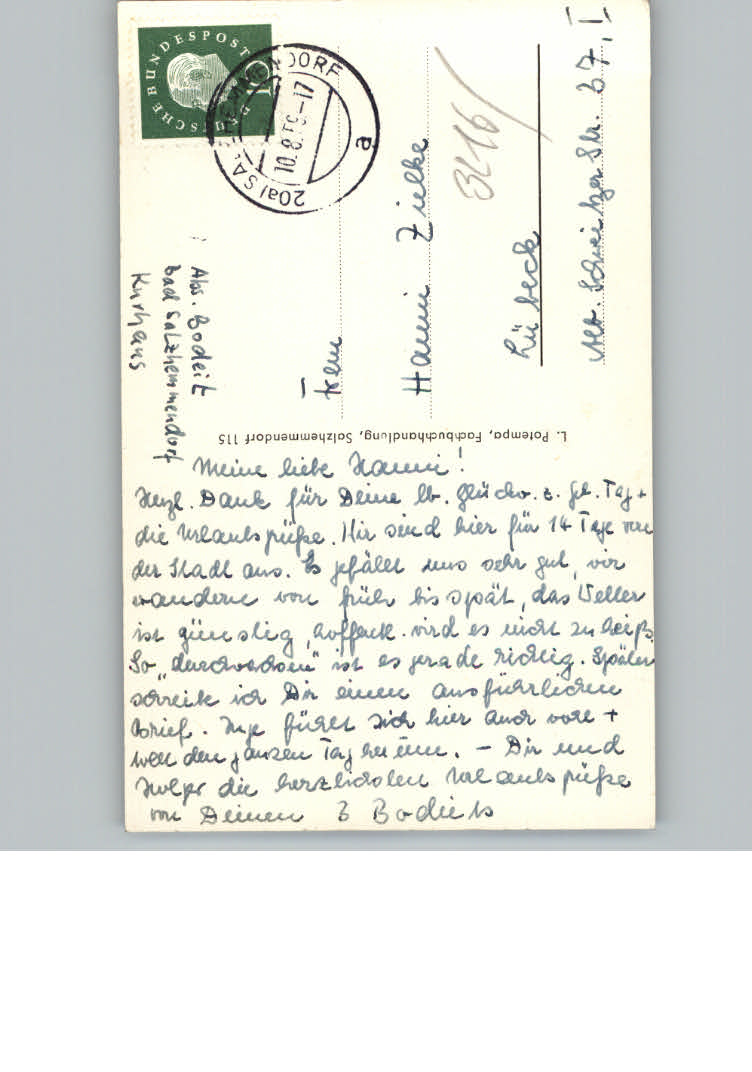 DEUTSCHE BUNDESPOST
10
(20a) SALZHEMMENDORF
10.8.59-17
a
Abs. Bodeit
Bad Salzhemmendorf
Kurhaus
3216/
Hanni Zielke
Lübeck
Alb. Schweitzer Str. 37, I
L. Potempa, Fachbuchhandlung, Salzhemmendorf 115
Meine liebe Hanni!
Herzl. Dank für Deine lb. Glückw. z. Geb. Tag +
die Urlaubsgrüße. Wir sind hier für 14 Tage von
der Stadt aus. Es gefällt uns sehr gut, wir
wandern von früh bis spät, das Wetter
ist günstig, hoffentl. wird es nicht zu heiß.
So ist es gerade richtig. Später
schreibe ich Dir einen ausführlichen
Brief. Inge fühlt sich hier auch wohl +
den ganzen Tag herum. – Dir und
Holger die herzlichsten Urlaubsgrüße
von Deinen 3 Bodeits